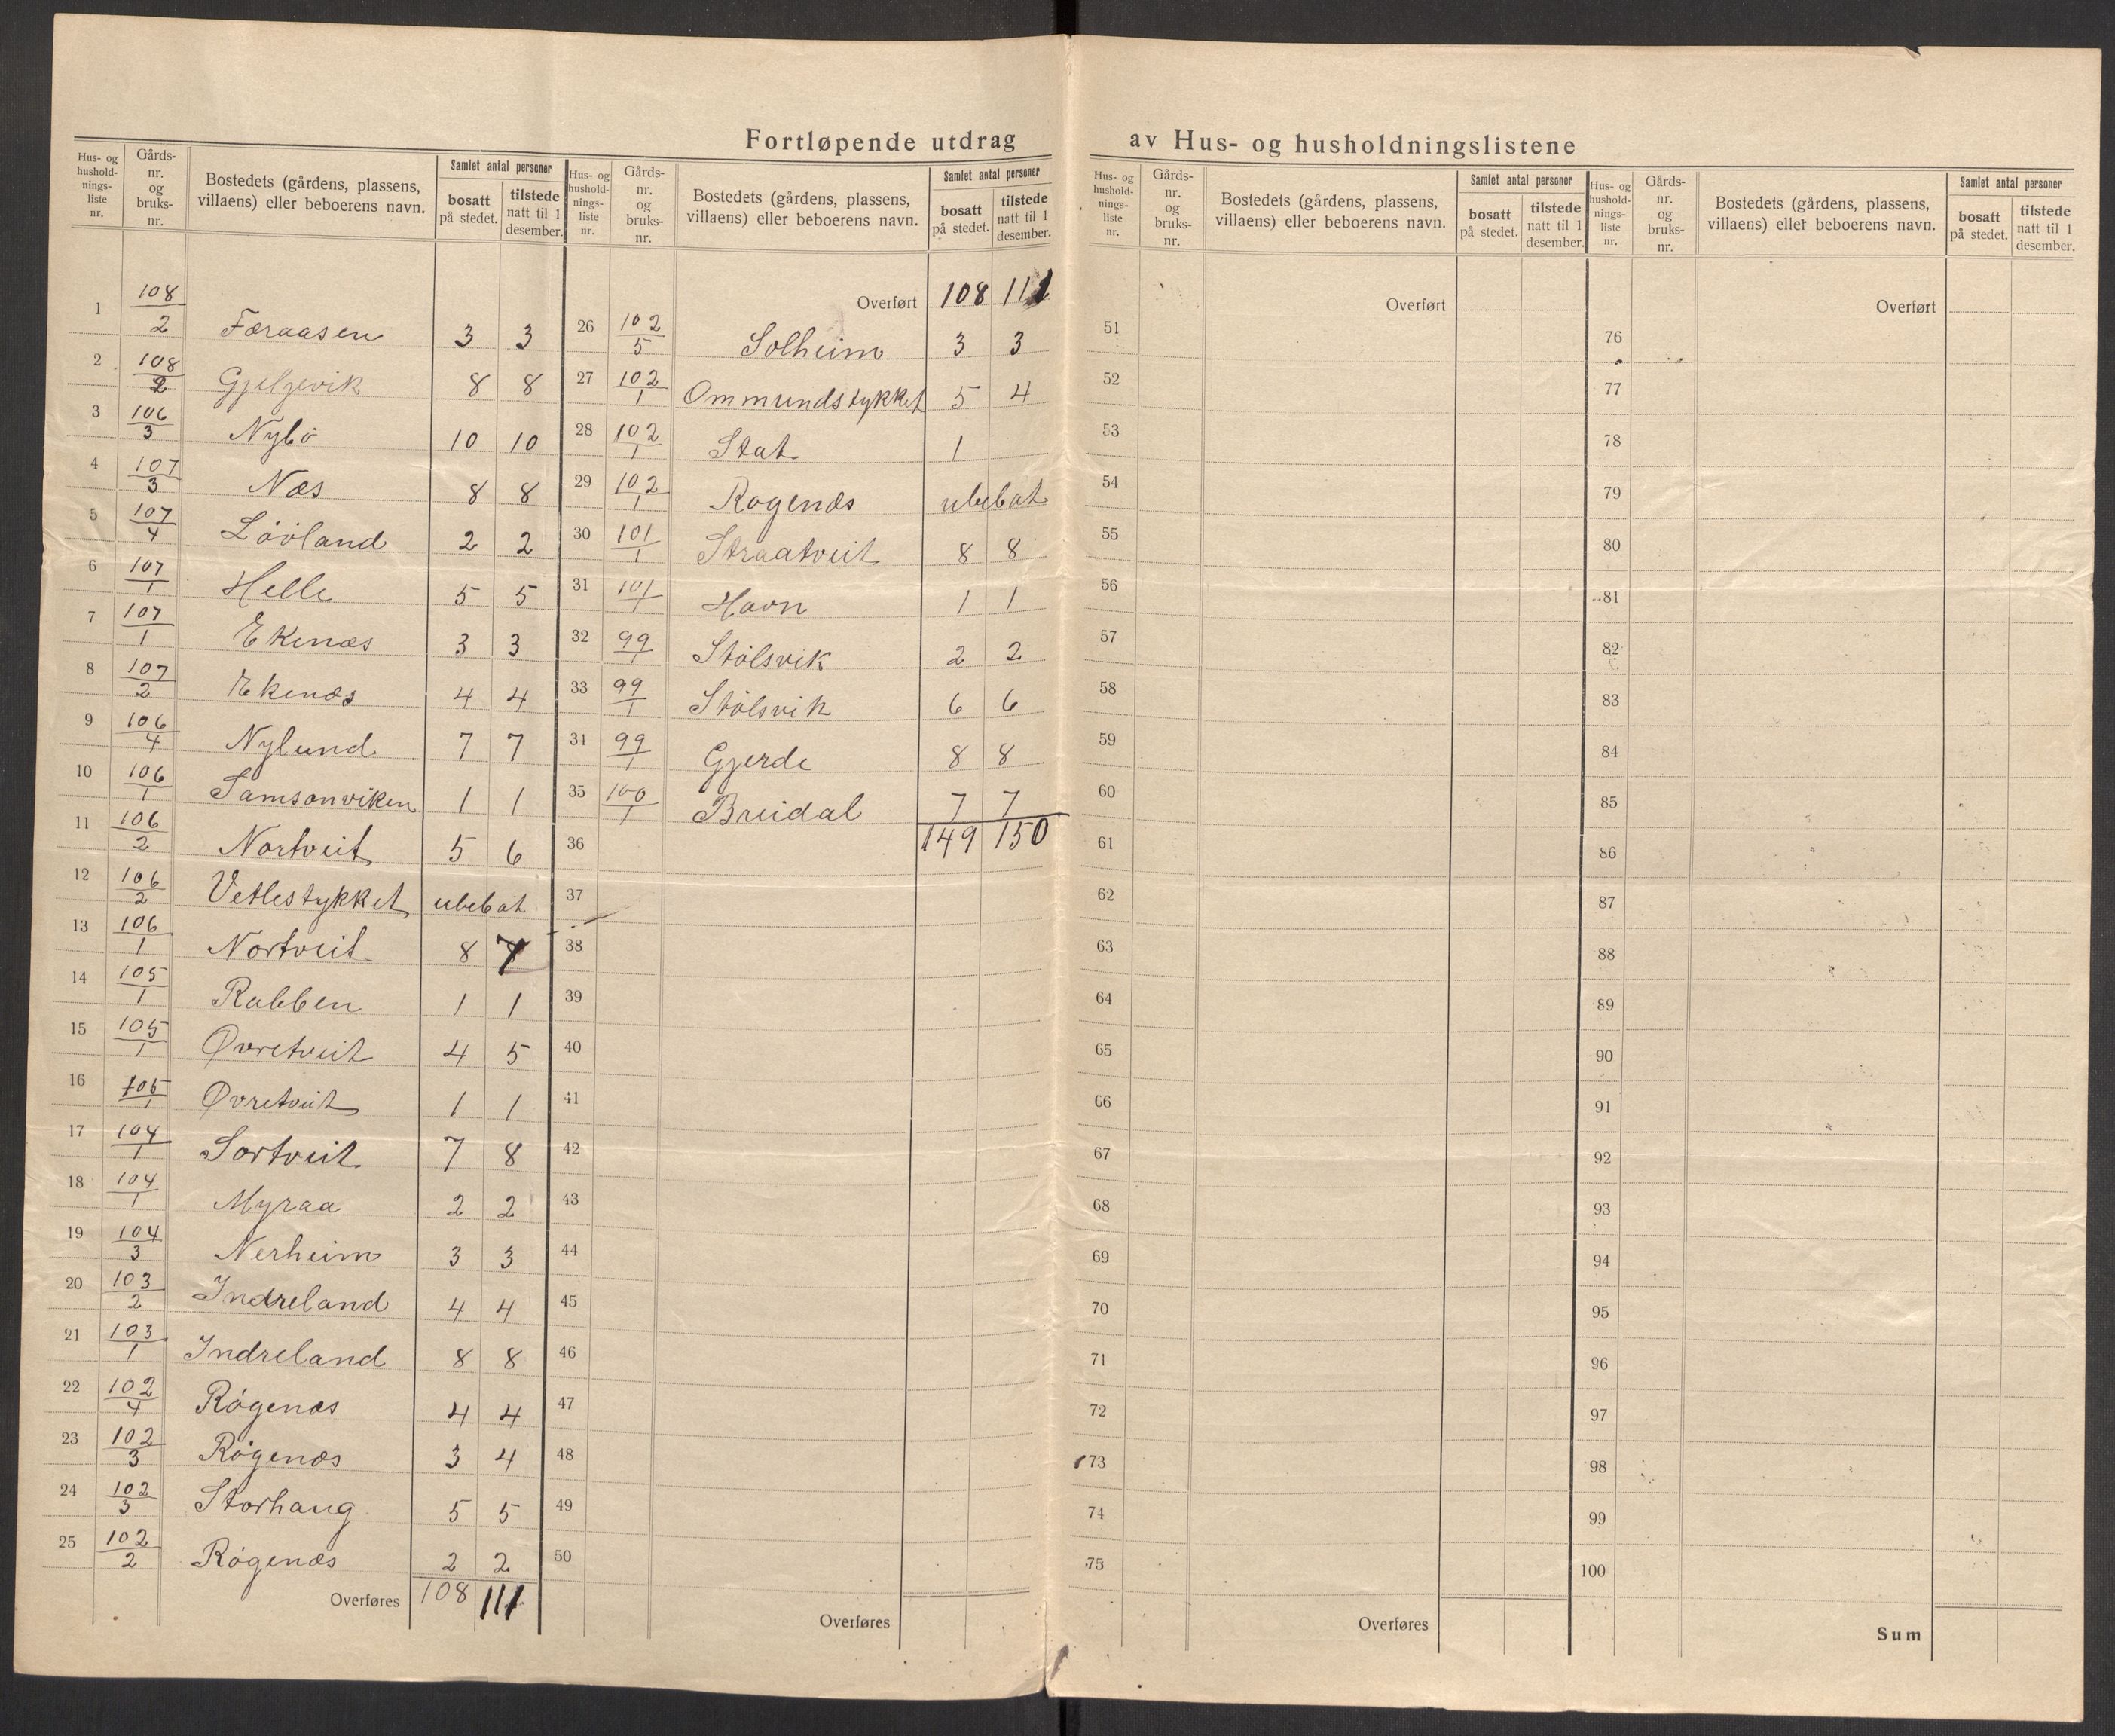 Fortløpende utdrag av Hus- og husholdningslistene
Hus- og husholdningsliste nr. | Gårds- nr. og bruks- nr. | Bostedets (gårdens, plassens, villaens) eller beboerens navn. | Samlet antal personer | bosatt på stedet. | tilstede natt til 1 desember.
1 108/2 Færaasen 3 3
2 108/2 Gjeljevik 8 8
3 106/3 Nybø 10 10
4 107/3 Næs 8 8
5 107/4 Løvland 2 2
6 107/1 Helle 5 5
7 107/1 Ekenæs 3 3
8 107/2 Ekenæs 4 4
9 106/4 Nylund 7 7
10 106/1 Samsonviken 1 1
11 106/2 Nortveit 5 6
12 106/2 Vetlestykket ubebot
13 106/1 Nortveit 8 7
14 105/1 Rabben 1 1
15 105/1 Øvretveit 4 5
16 105/1 Øvretveit 1 1
17 104/1 Sortveit 7 8
18 104/1 Myraa 2 2
19 104/3 Nerheim 3 3
20 103/2 Indreland 4 4
21 103/1 Indreland 8 8
22 102/4 Røgenæs 4 4
23 102/3 Røgenæs 3 4
24 102/3 Storhaug 5 5
25 102/2 Røgenæs 2 2
Overføres 108 111
Hus- og husholdningsliste nr. | Gårds- nr. og bruks- nr. | Bostedets (gårdens, plassens, villaens) eller beboerens navn. | Samlet antal personer | bosatt på stedet. | tilstede natt til 1 desember.
Overført 108 111
26 102/5 Solheim 3 3
27 102/1 Ommundstykket 5 4
28 102/1 Stat 1
29 102/1 Rogenæs ubebot
30 101/1 Straatveit 8 8
31 101/1 Havn 1 1
32 99/1 Stølsvik 2 2
33 99/1 Stølsvik 6 6
34 99/1 Gjerde 8 8
35 100/1 Breidal 7 7
36 149 150
37
38
39
40
41
42
43
44
45
46
47
48
49
50
Overføres
Hus- og husholdningsliste nr. | Gårds- nr. og bruks- nr. | Bostedets (gårdens, plassens, villaens) eller beboerens navn. | Samlet antal personer | bosatt på stedet. | tilstede natt til 1 desember.
Overført
51
52
53
54
55
56
57
58
59
60
61
62
63
64
65
66
67
68
69
70
71
72
73
74
75
Overføres
Hus- og husholdningsliste nr. | Gårds- nr. og bruks- nr. | Bostedets (gårdens, plassens, villaens) eller beboerens navn. | Samlet antal personer | bosatt på stedet. | tilstede natt til 1 desember.
Overført
76
77
78
79
80
81
82
83
84
85
86
87
88
89
90
91
92
93
94
95
96
97
98
99
100
Sum